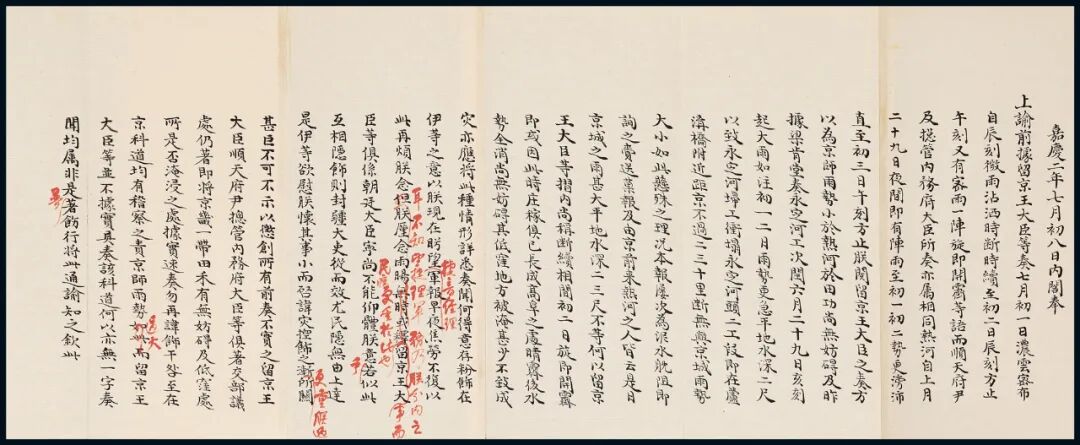 嘉慶二年七月初八日內閣奉
上諭前據留京王大臣等奏七月初一日濃雲密布
自辰刻微雨沾洒時斷時續至初二日辰刻方止
午刻又有密雨一陣旋即開霽等語而順天府尹
及總管內務府大臣所奏亦屬相同熱河自上月
二十九日夜間即有陣雨至初一初二勢更滂沛
直至初三日午刻方止朕閱留京王大臣之奏方
以為京師雨勢小於熱河於田功尚無妨碍及昨
據梁肯堂奏永定河工次閏六月二十九日亥刻
起大雨如注初一二日雨勢更急平地水深二尺
以致永定河埽工衝塌永定河頭二工段即在蘆
溝橋附近距京不過二三十里斷無與京城雨勢
大小如此懸殊之理况本報屢次為泥水躭阻即
詢之賫送藁報及由京前來熱河之人皆云是日
京城之雨甚大平地水深二三尺不等何以留京
王大臣等摺內尚稱斷續相間初二日旋即開霽
即或因此時庄稼俱已長成高阜之處晴霽後水
勢全消尚無妨碍其低窪地方被淹甚少不致成
灾亦應將此種情形詳悉奏聞何得意存粉飾在
伊等之意以朕現在盻望軍報早夜焦勞不復以
此再煩朕念但朕廑念雨暘無時或釋留京王大
耳不知理軍務乃朕分內之事而
臣等俱係朝廷大臣寧尚不能仰體朕意若似此
民隱更重於此也
互相隱飾則封疆大吏從而效尤民隱無由上達
是伊等欲慰朕懷其事小而啓諱灾捏飾之漸所關
甚巨不可不示以懲創所有前奏不實之留京王
大臣順天府尹總管內務府大臣等俱著交部議
處仍著即將京畿一帶田禾有無妨碍及低窪處
所是否淹浸之處據實速奏勿再諱飾干咎至在
京科道均有稽察之責京師雨勢如此而留京王
大臣等並不據實具奏該科道何以亦無一字奏
聞均屬非是著飭行將此通諭知之欽此